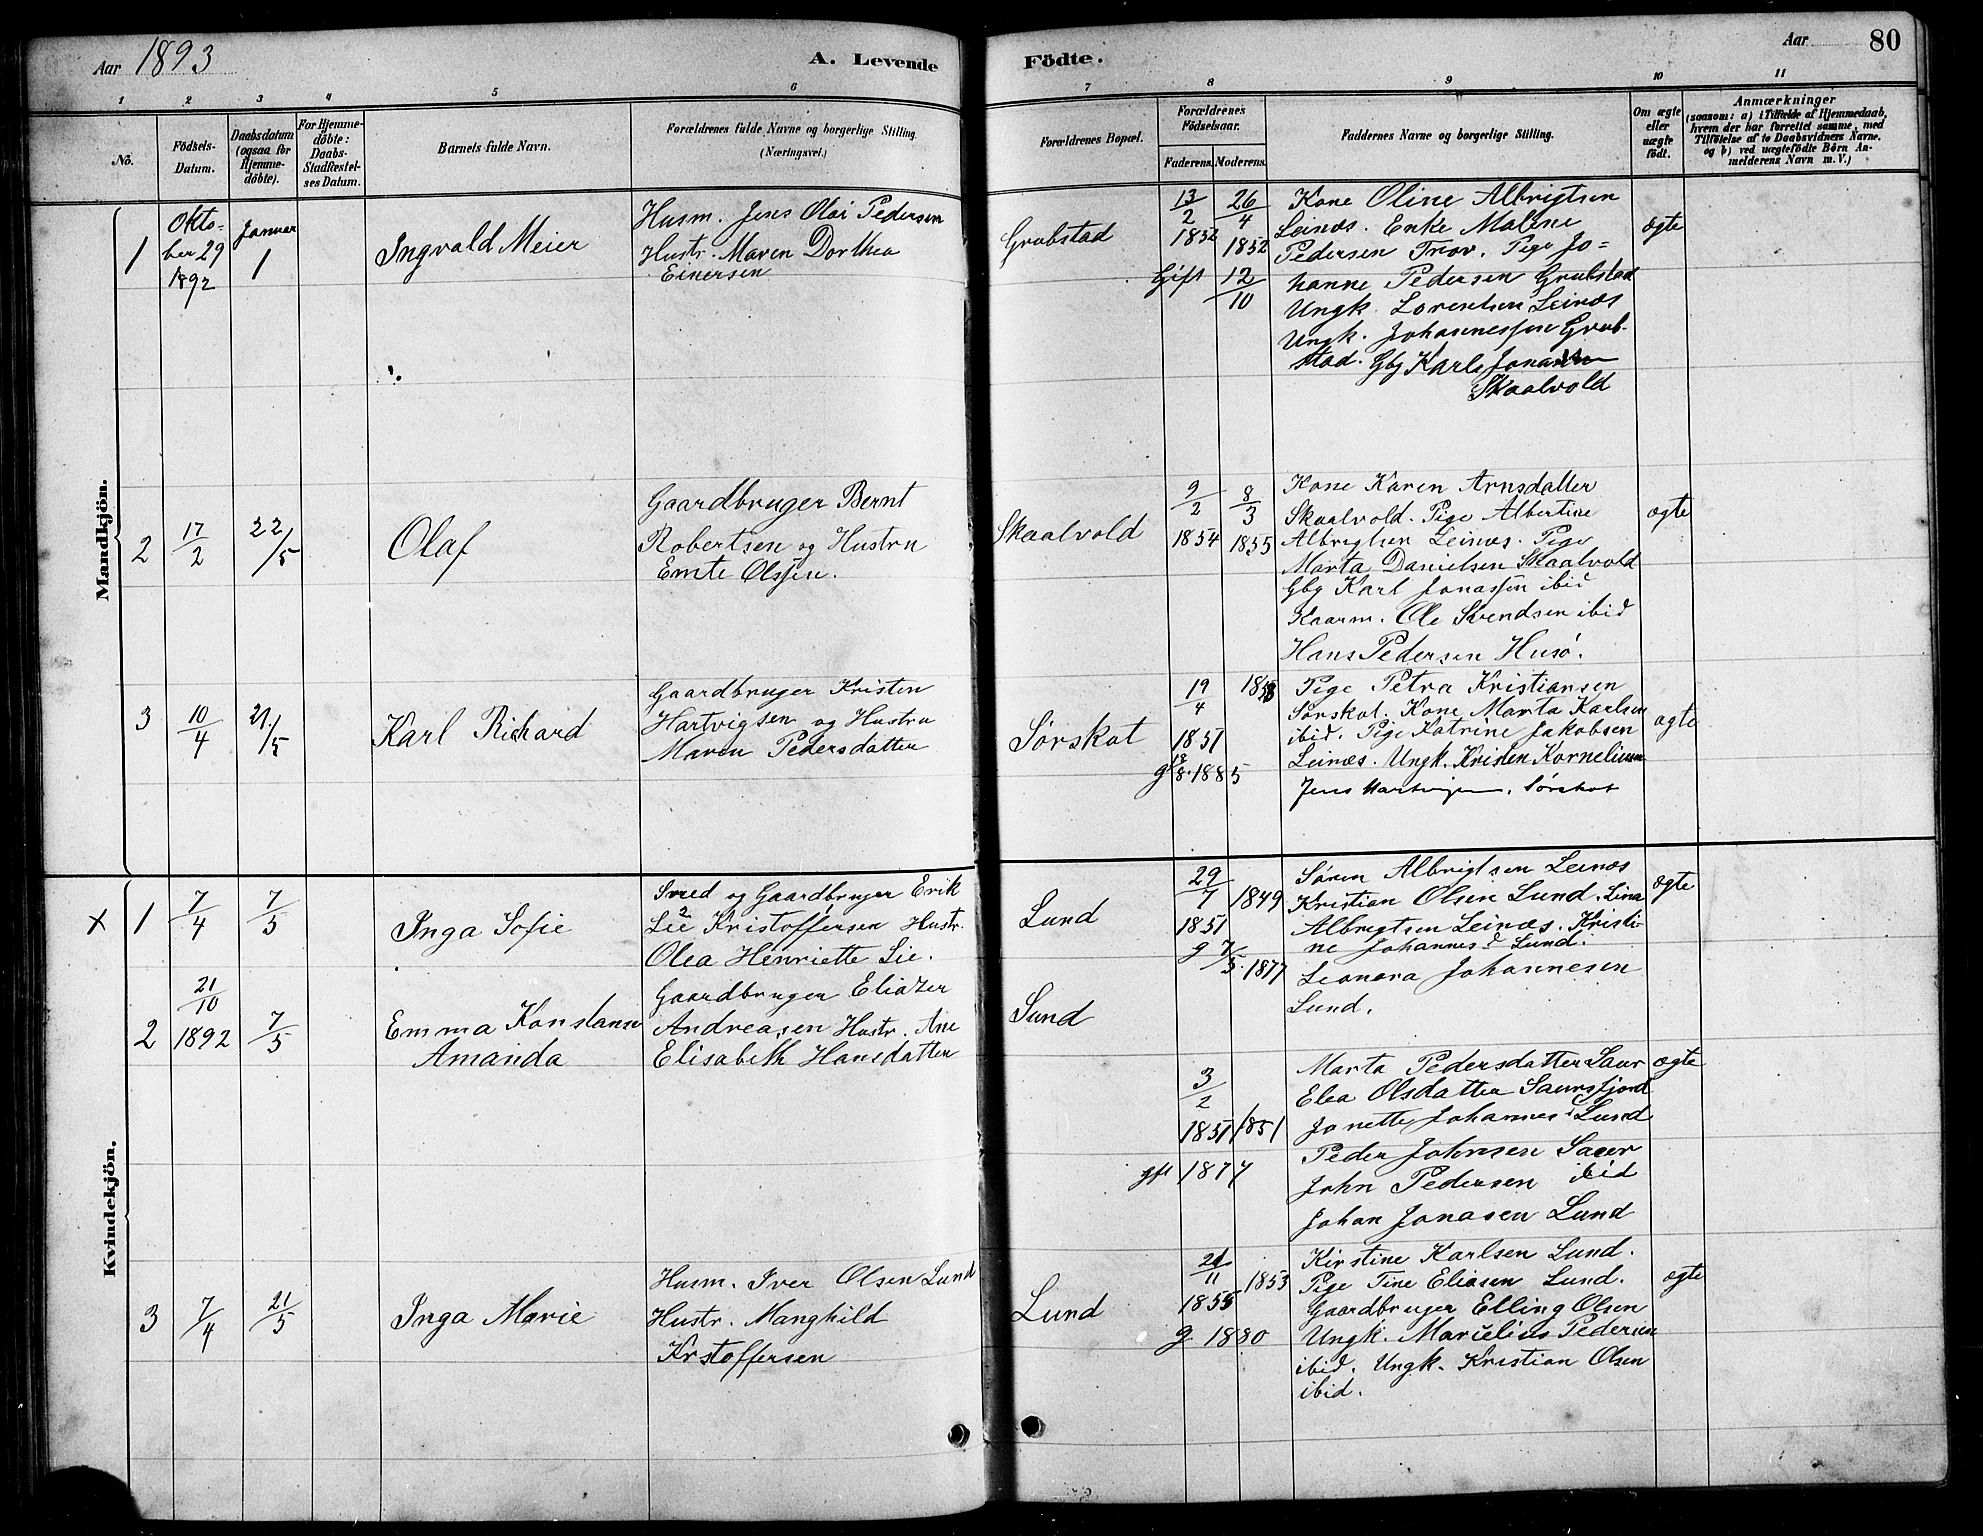 Aar 1893
A. Levende Födte.
Aar 80
1 2 3 4 5 6 7 8 9 10 11
No.
Födsels-Datum.
Daabsdatum (ogsaa for Hjemme-döbte).
For Hjemme-döbte: Daabs-Stadfæstel-ses Datum.
Barnets fulde Navn.
Forældrenes fulde Navne og borgerlige Stilling. (Næringsvei.)
Forældrenes Bopæl.
Forældrenes Födselsaar.
Faderens. Moderens.
Faddernes Navne og borgerlige Stilling.
Om ægte eller uægte födt.
Anmærkninger
(saasom: a) i Tilfælde af Hjemmedaab,
hvem der har forrettet samme, med
Tilföielse af to Daabsvidners Navne.
og b) ved uægtefödte Börn An-
melderens Navn m. V.)
Mandkjön.
1
Okto-
ber 29
1892
Januar
1
Ingvald Meier
Husm. Jens Olai Pedersen
Hustr. Maren Dorthea
Einersen
Grubstad
13/2 1852
26/4 1852
Gift 12/10
Kone Oline Albrigtsen
Leinæs. Enke Maline
Pedersen Trov. Pige Jo=
hanne Pedersen Grubstad
Ungk. Lorentsen Leinæs
Ungk. Johannessen Grub-
stad. Gbg Karl Jonassen
Skaalvold
ægte
2
17/2
22/5
Olaf
Gaardbruger Bernt
Robertsen og Hustru
Emte Olssen.
Skaalvold
9/2 1854
8/3 1855
Kone Karen Arnsdatter
Skaalvold. Pige Albertine
Albrigtsen Leinæs. Pige
Marta Danielsen Skaalvold
Gbg Karl Jonassen ibid
Kaarm. Ole Svendsen ibid
Hans Pedersen Husö.
ægte
3
10/4
21/5
Karl Richard
Gaardbruger Kristen
Hartvigsen og Hustru
Maren Pedersdatter
Sörskot
19/4 1851
1858
g 18/8. 1885
Pige Petra Kristiansen
Sörskot. Kone Marta Karlsen
ibid. Pige Katrine Jakobsen
Leinæs. Ungk. Kristen Kornelius
Jens Hartvigsen, Sörskot
ægte
Kvindekjön.
x 1
7/4
7/5
Inga Sofie
Smed og Gaardbruger Erik
Lie Kristoffersen Hustr.
Olea Henriette Lie.
Lund
29/7 1851
1849
g 7/5. 1877
Sören Albrigtsen Leinæs
Kristian Olsen Lund. Lina
Albrigtsen Leinæs. Kristi-
ne Johannesd Lund.
Leonora Johannesen
Lund.
ægte
2
21/10
1892
7/5
Emma Konstanse
Amanda
Gaardbruger Eliazer
Andreasen Hustr. Ane
Elisabeth Hansdatter
Lund
3/2 1851
1851
gft 1877
Marta Pedersdatter Saur
Elea Olsdatter Saursfjord
Jonette Johannesd Lund
Peder Johnsen Saur
John Pedersen ibid
Johan Jonasen Lund
ægte
3
7/4
21/5
Inga Marie
Husm. Iver Olsen Lund
Hustr. Manghild
Krstoffersen
Lund
/11 1855
1853
g 1880
Kirstine Karlsen Lund.
Pige Tine Eliasen Lund.
Gaardbruger Elling Olsen
Ungk. Marielius Pedersen
ibid. Ungk. Kristian Olsen
ibid.
ægte